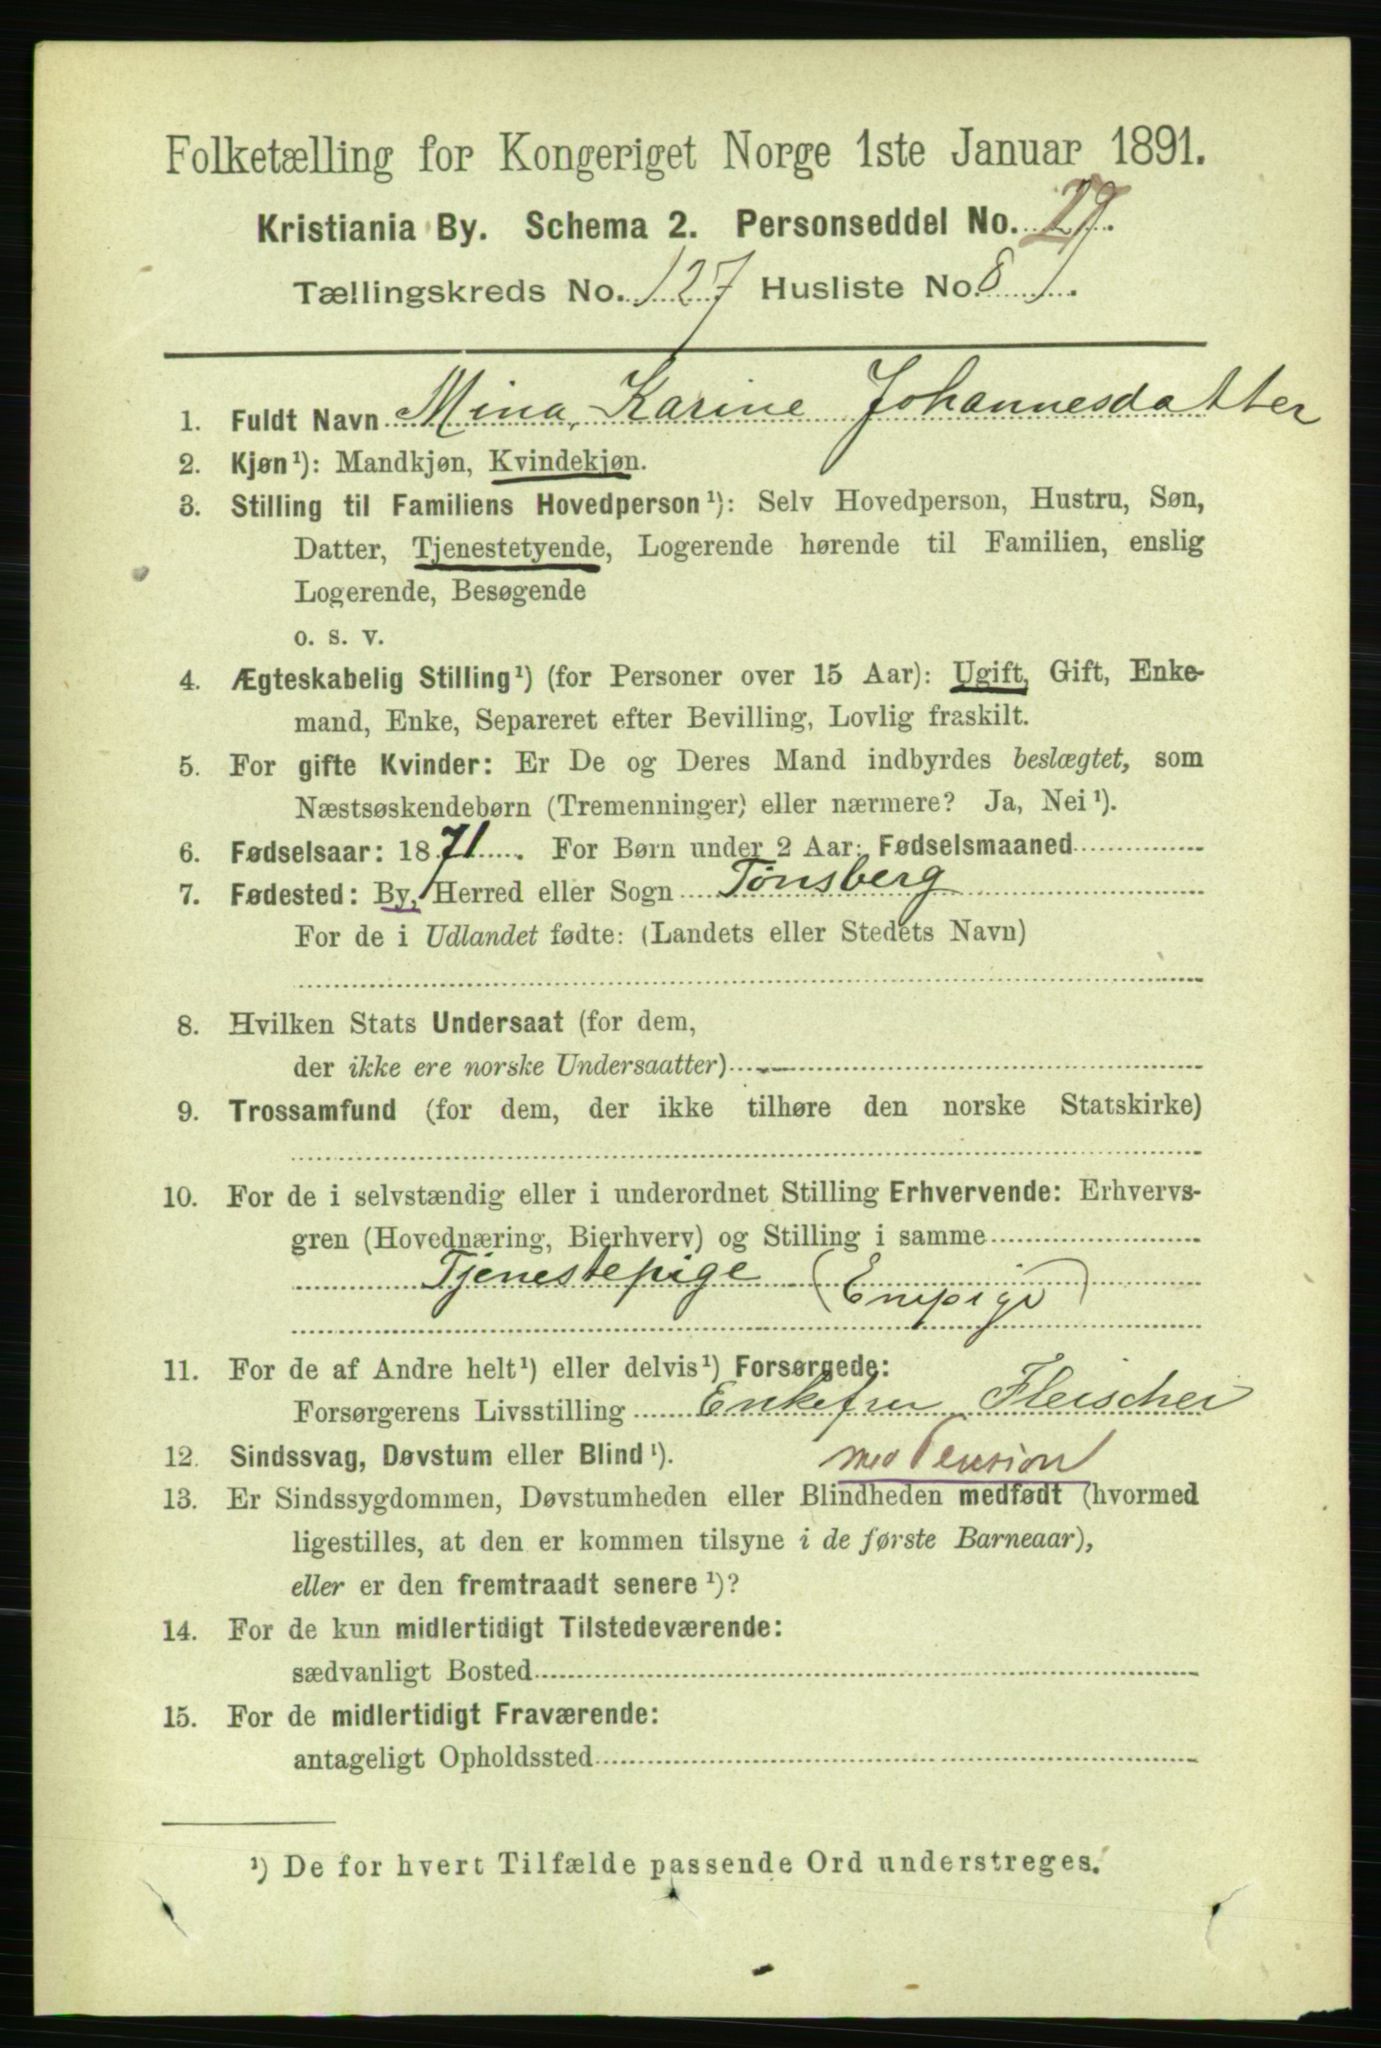 Folketælling for Kongeriget Norge 1ste Januar 1891.
Kristiania By. Schema 2. Personseddel No. 29.
Tællingskreds No. 127 Husliste No. 8
1. Fuldt Navn Mina Karine Johannesdatter
2. Kjøn¹): Mandkjøn, Kvindekjøn.
3. Stilling til Familiens Hovedperson¹): Selv Hovedperson, Hustru, Søn,
Datter, Tjenestetyende, Logerende hørende til Familien, enslig
Logerende, Besøgende
o. s. v.
4. Ægteskabelig Stilling¹) (for Personer over 15 Aar): Ugift, Gift, Enke-
mand, Enke, Separeret efter Bevilling, Lovlig fraskilt.
5. For gifte Kvinder: Er De og Deres Mand indbyrdes beslægtet, som
Næstsøskendebørn (Tremenninger) eller nærmere? Ja, Nei¹).
6. Fødselsaar: 1871. For Børn under 2 Aar: Fødselsmaaned
7. Fødested: By, Herred eller Sogn Tønsberg
For de i Udlandet fødte: (Landets eller Stedets Navn)
8. Hvilken Stats Undersaat (for dem,
der ikke ere norske Undersaatter)
9. Trossamfund (for dem, der ikke tilhøre den norske Statskirke)
10. For de i selvstændig eller i underordnet Stilling Erhvervende: Erhvervs-
gren (Hovednæring, Bierhverv) og Stilling i samme
Tjenestepige (Enepige)
11. For de af Andre helt¹) eller delvis¹) Forsørgede:
Forsørgerens Livsstilling Enkefru Fleischer
12. Sindssvag, Døvstum eller Blind¹). med Pension
13. Er Sindssygdommen, Døvstumheden eller Blindheden medfødt (hvormed
ligestilles, at den er kommen tilsyne i de første Barneaar),
eller er den fremtraadt senere¹)?
14. For de kun midlertidigt Tilstedeværende:
sædvanligt Bosted
15. For de midlertidigt Fraværende:
antageligt Opholdssted
¹) De for hvert Tilfælde passende Ord understreges.